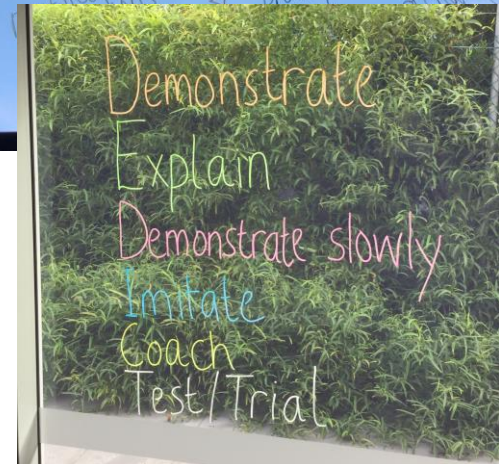 Demonstrate
Explain
Demonstrate slowly
Imitate
Coach
Test/Trial